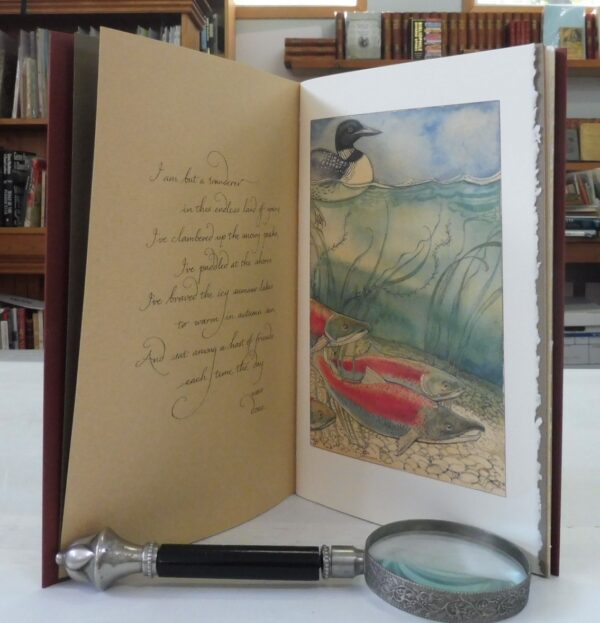 I am but a wanderer
in this endless land of
I've clambered up the snowy peaks,
I've paddled at the shore
I've braved the icy summer lakes
to warm in autumn sun,
And sat among a host of friends
each time the day
was
done.